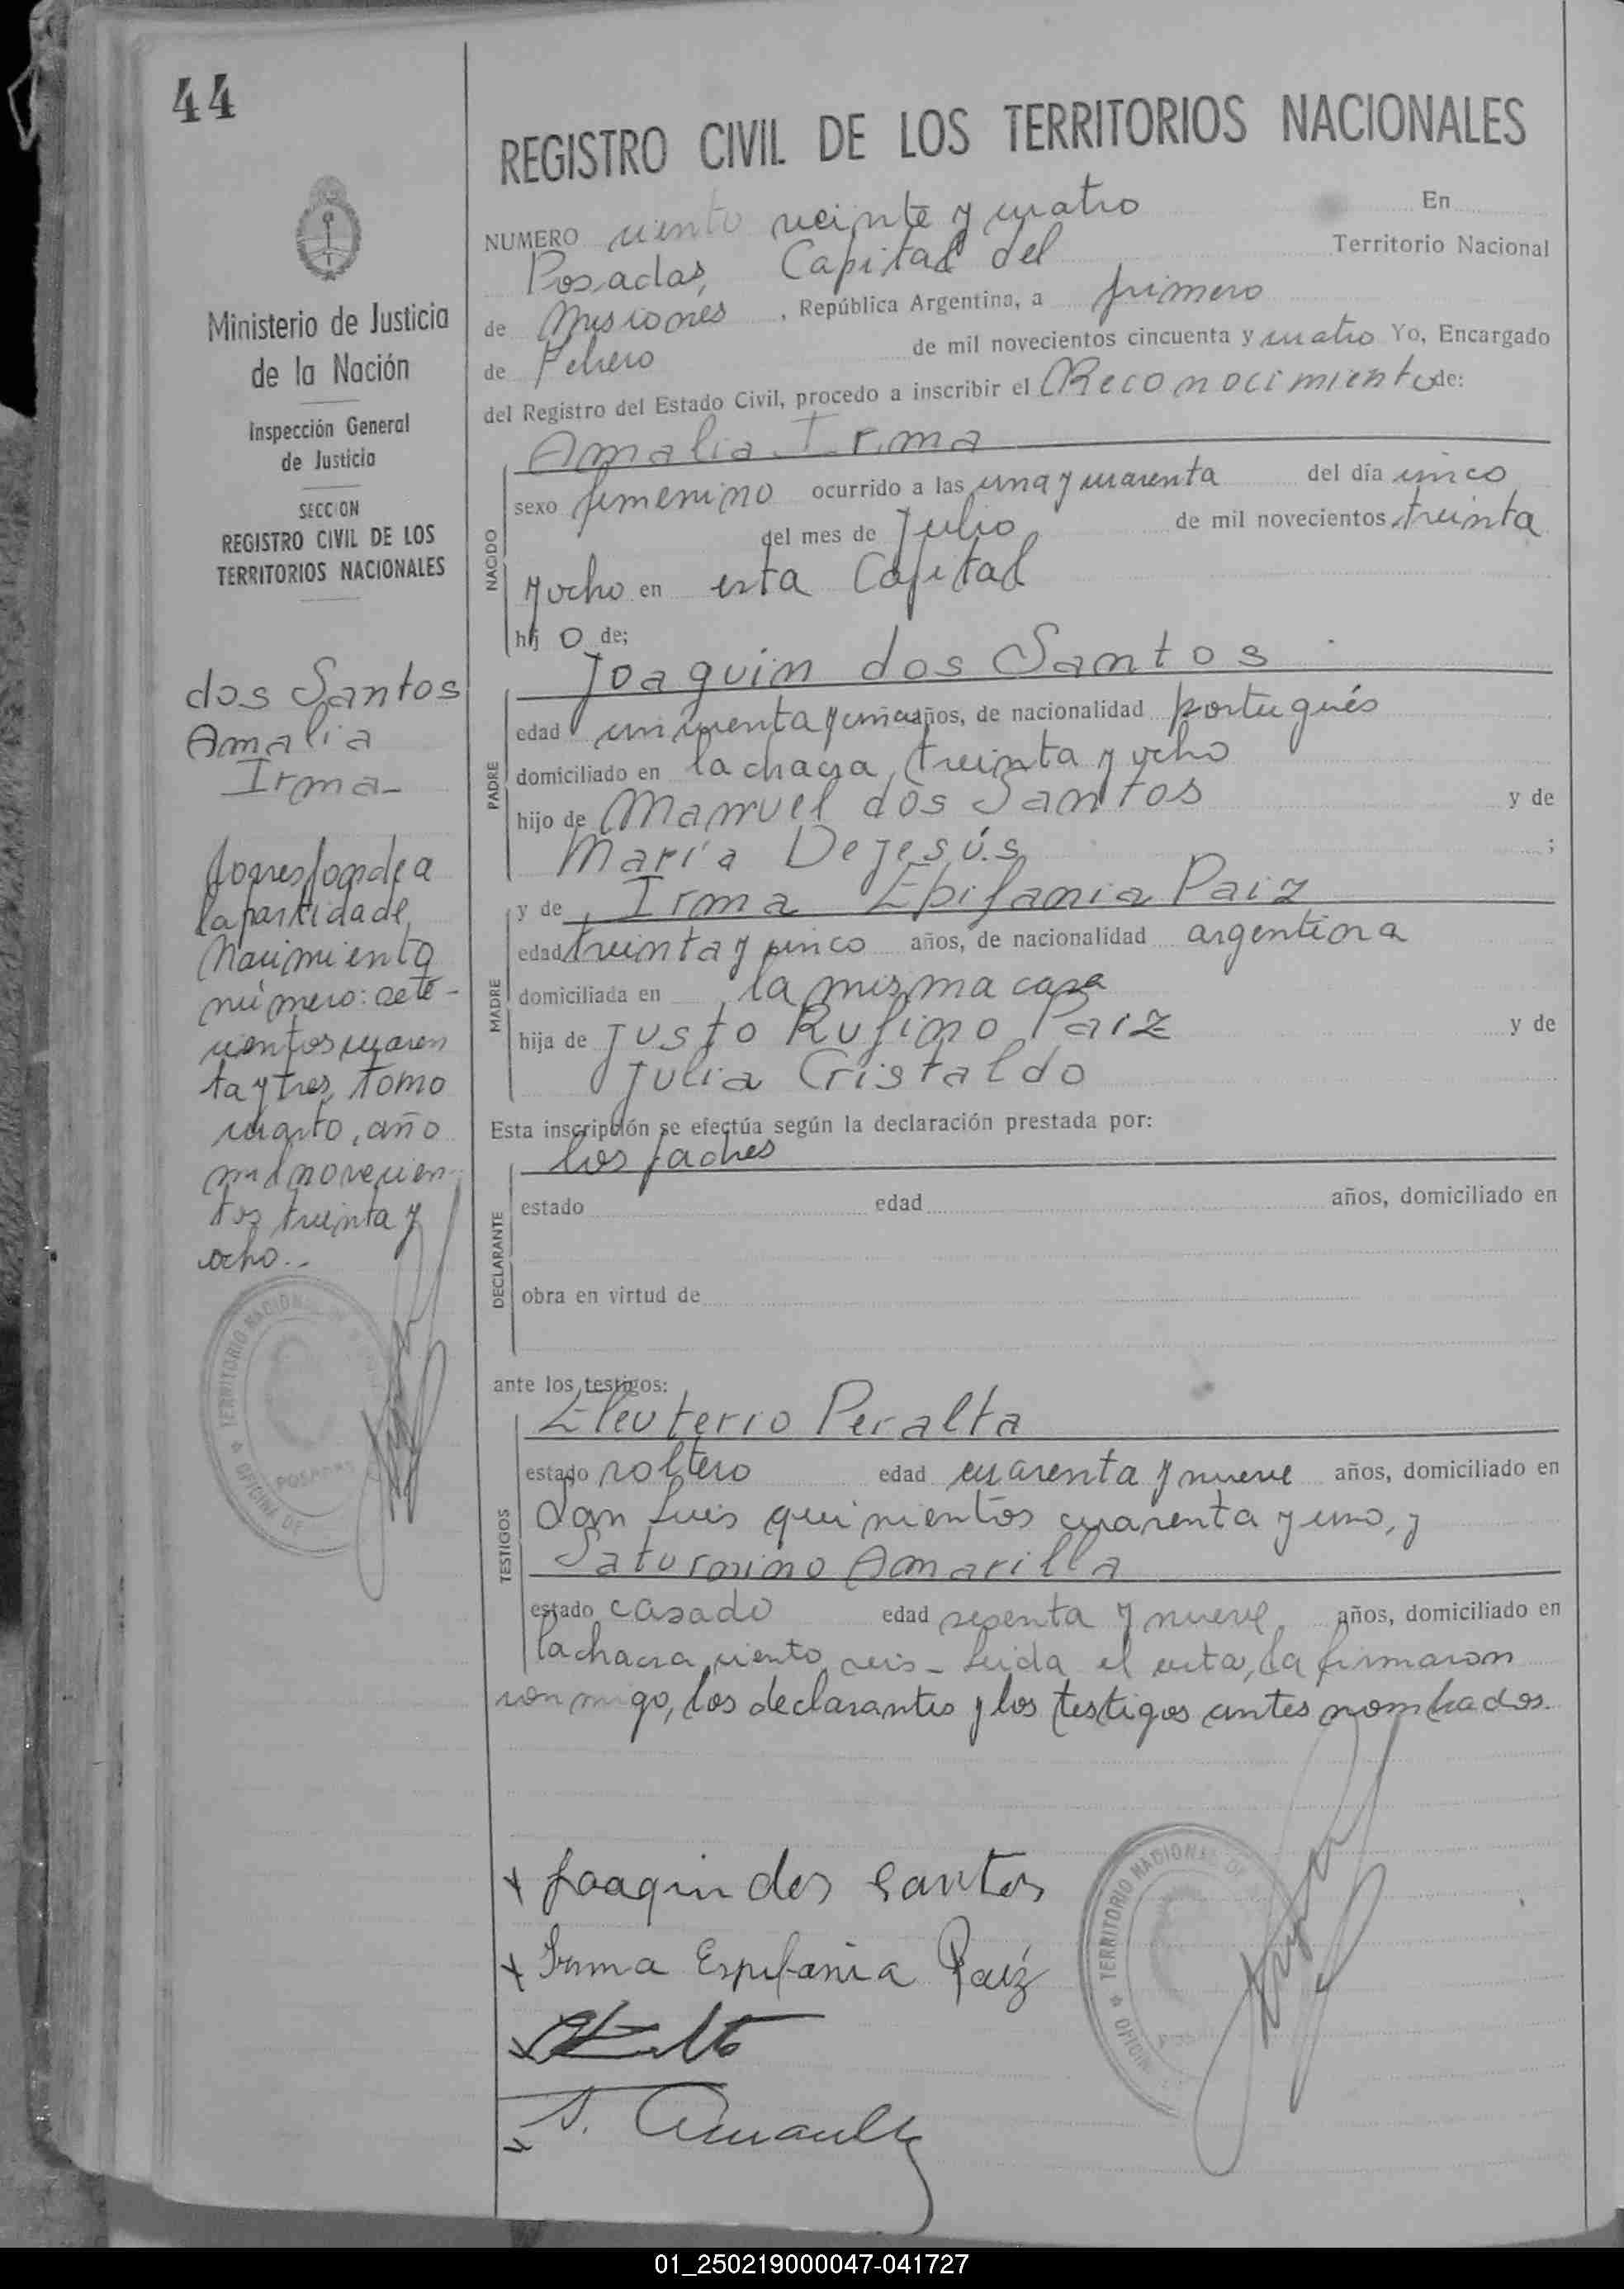 44
REGISTRO CIVIL DE LOS TERRITORIOS NACIONALES
NUMERO ciento veinte y cuatro En
Posadas, Capital del Territorio Nacional
de Misiones, República Argentina, a primero
de Febrero de mil novecientos cincuenta y cuatro Yo, Encargado
del Registro del Estado Civil, procedo a inscribir el Reconocimiento de:
Amalia Irma
NACIDO
sexo femenino ocurrido a las una y cuarenta del día cinco
del mes de Julio de mil novecientos treinta
y ocho en esta Capital
hij o de;
Joaquin dos Santos
PADRE
edad cincuenta y años, de nacionalidad portugués
domiciliado en la chacra treinta y ocho
hijo de Manuel dos Santos y de
María Dejesús ;
y de Irma Epifania Paiz
MADRE
edad treinta y cinco años, de nacionalidad argentina
domiciliada en la misma casa
hija de Justo Rufino Paiz y de
Julia Cristaldo
Esta inscripción se efectúa según la declaración prestada por:
los padres
DECLARANTE
estado edad años, domiciliado en
obra en virtud de
ante los testigos:
Eleuterio Peralta
TESTIGOS
estado soltero edad cuarenta y nueve años, domiciliado en
San Luis quinientos cuarenta y uno, y
Saturnino Amarilla
estado casado edad sesenta y nueve años, domiciliado en
la chacra ciento seis - Leida el acta, la firmaron
conmigo, los declarantes y los testigos antes nombrados.
Joaquin dos Santos
Irma Espifania Paiz
S. Amarilla
TERRITORIO NACIONAL DE
OFICIN
Ministerio de Justicia
de la Nación
Inspección General
de Justicia
SECCION
REGISTRO CIVIL DE LOS
TERRITORIOS NACIONALES
dos Santos
Amalia
Irma-
Corresponde a
la partida de
Nacimiento
número: sete-
cientos cuaren
ta y tres, tomo
cuarto, año
mil novecien-
tos treinta y
ocho..
TERRITORIO NACIONAL DE
OFICINA DE
POSADAS
01_250219000047-041727